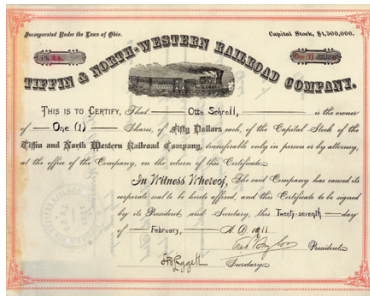 Incorporated Under the Laws of Ohio.
Capital Stock, $1,500,000.
TIFFIN & NORTH-WESTERN RAILROAD COMPANY.
THIS IS TO CERTIFY, That Otto Schroll, is the owner
of One (1) Shares, of Fifty Dollars each, of the Capital Stock of the
Tiffin and North Western Railroad Company, transferable only in person or by attorney,
at the office of the Company, on the return of this Certificate.
In Witness Whereof, The said Company has caused its
corporate seal to be hereto affixed, and this Certificate to be signed
by its President and Secretary, this Twenty-seventh day
of February, A.D. 1911.
President.
Secretary.